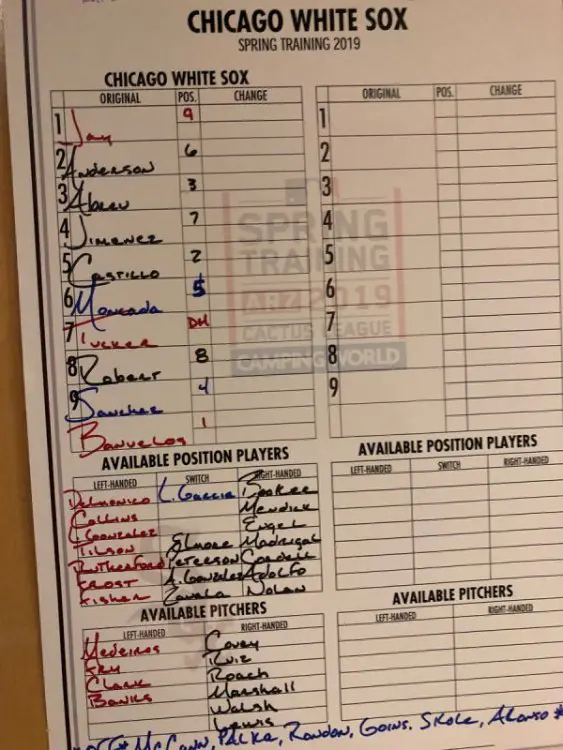 CHICAGO WHITE SOX
SPRING TRAINING 2019
CHICAGO WHITE SOX
ORIGINAL POS. CHANGE ORIGINAL POS. CHANGE
1 Jay 9 1
2 Anderson 6 2
3 Abreu 3 3
4 Jimenez 7 4
5 Castillo 2 5
6 Moncada 5 6
7 Tucker DH 7
8 Robert 8 8
9 Sanchez 4 9
Banuelos 1
SPRING
TRAINING
ARZ 2019
CACTUS LEAGUE
CAMPING WORLD
AVAILABLE POSITION PLAYERS AVAILABLE POSITION PLAYERS
LEFT-HANDED SWITCH RIGHT-HANDED LEFT-HANDED SWITCH RIGHT-HANDED
Delmonico L. Garcia Booker
Collins Mendick
L. Gonzalez Engel
Tilson Elmore Madrigal
Rutherford Peterson Cordell
Frost A. Gonzalez Adolfo
Fisher Zavala Nolan
AVAILABLE PITCHERS AVAILABLE PITCHERS
LEFT-HANDED RIGHT-HANDED LEFT-HANDED RIGHT-HANDED
Medeiros Covey
Fry Ruiz
Clark Roach
Banks Marshall
Walsh
Lewis
OFF* McCann, Palka, Rondon, Goins, Skole, Alonso *